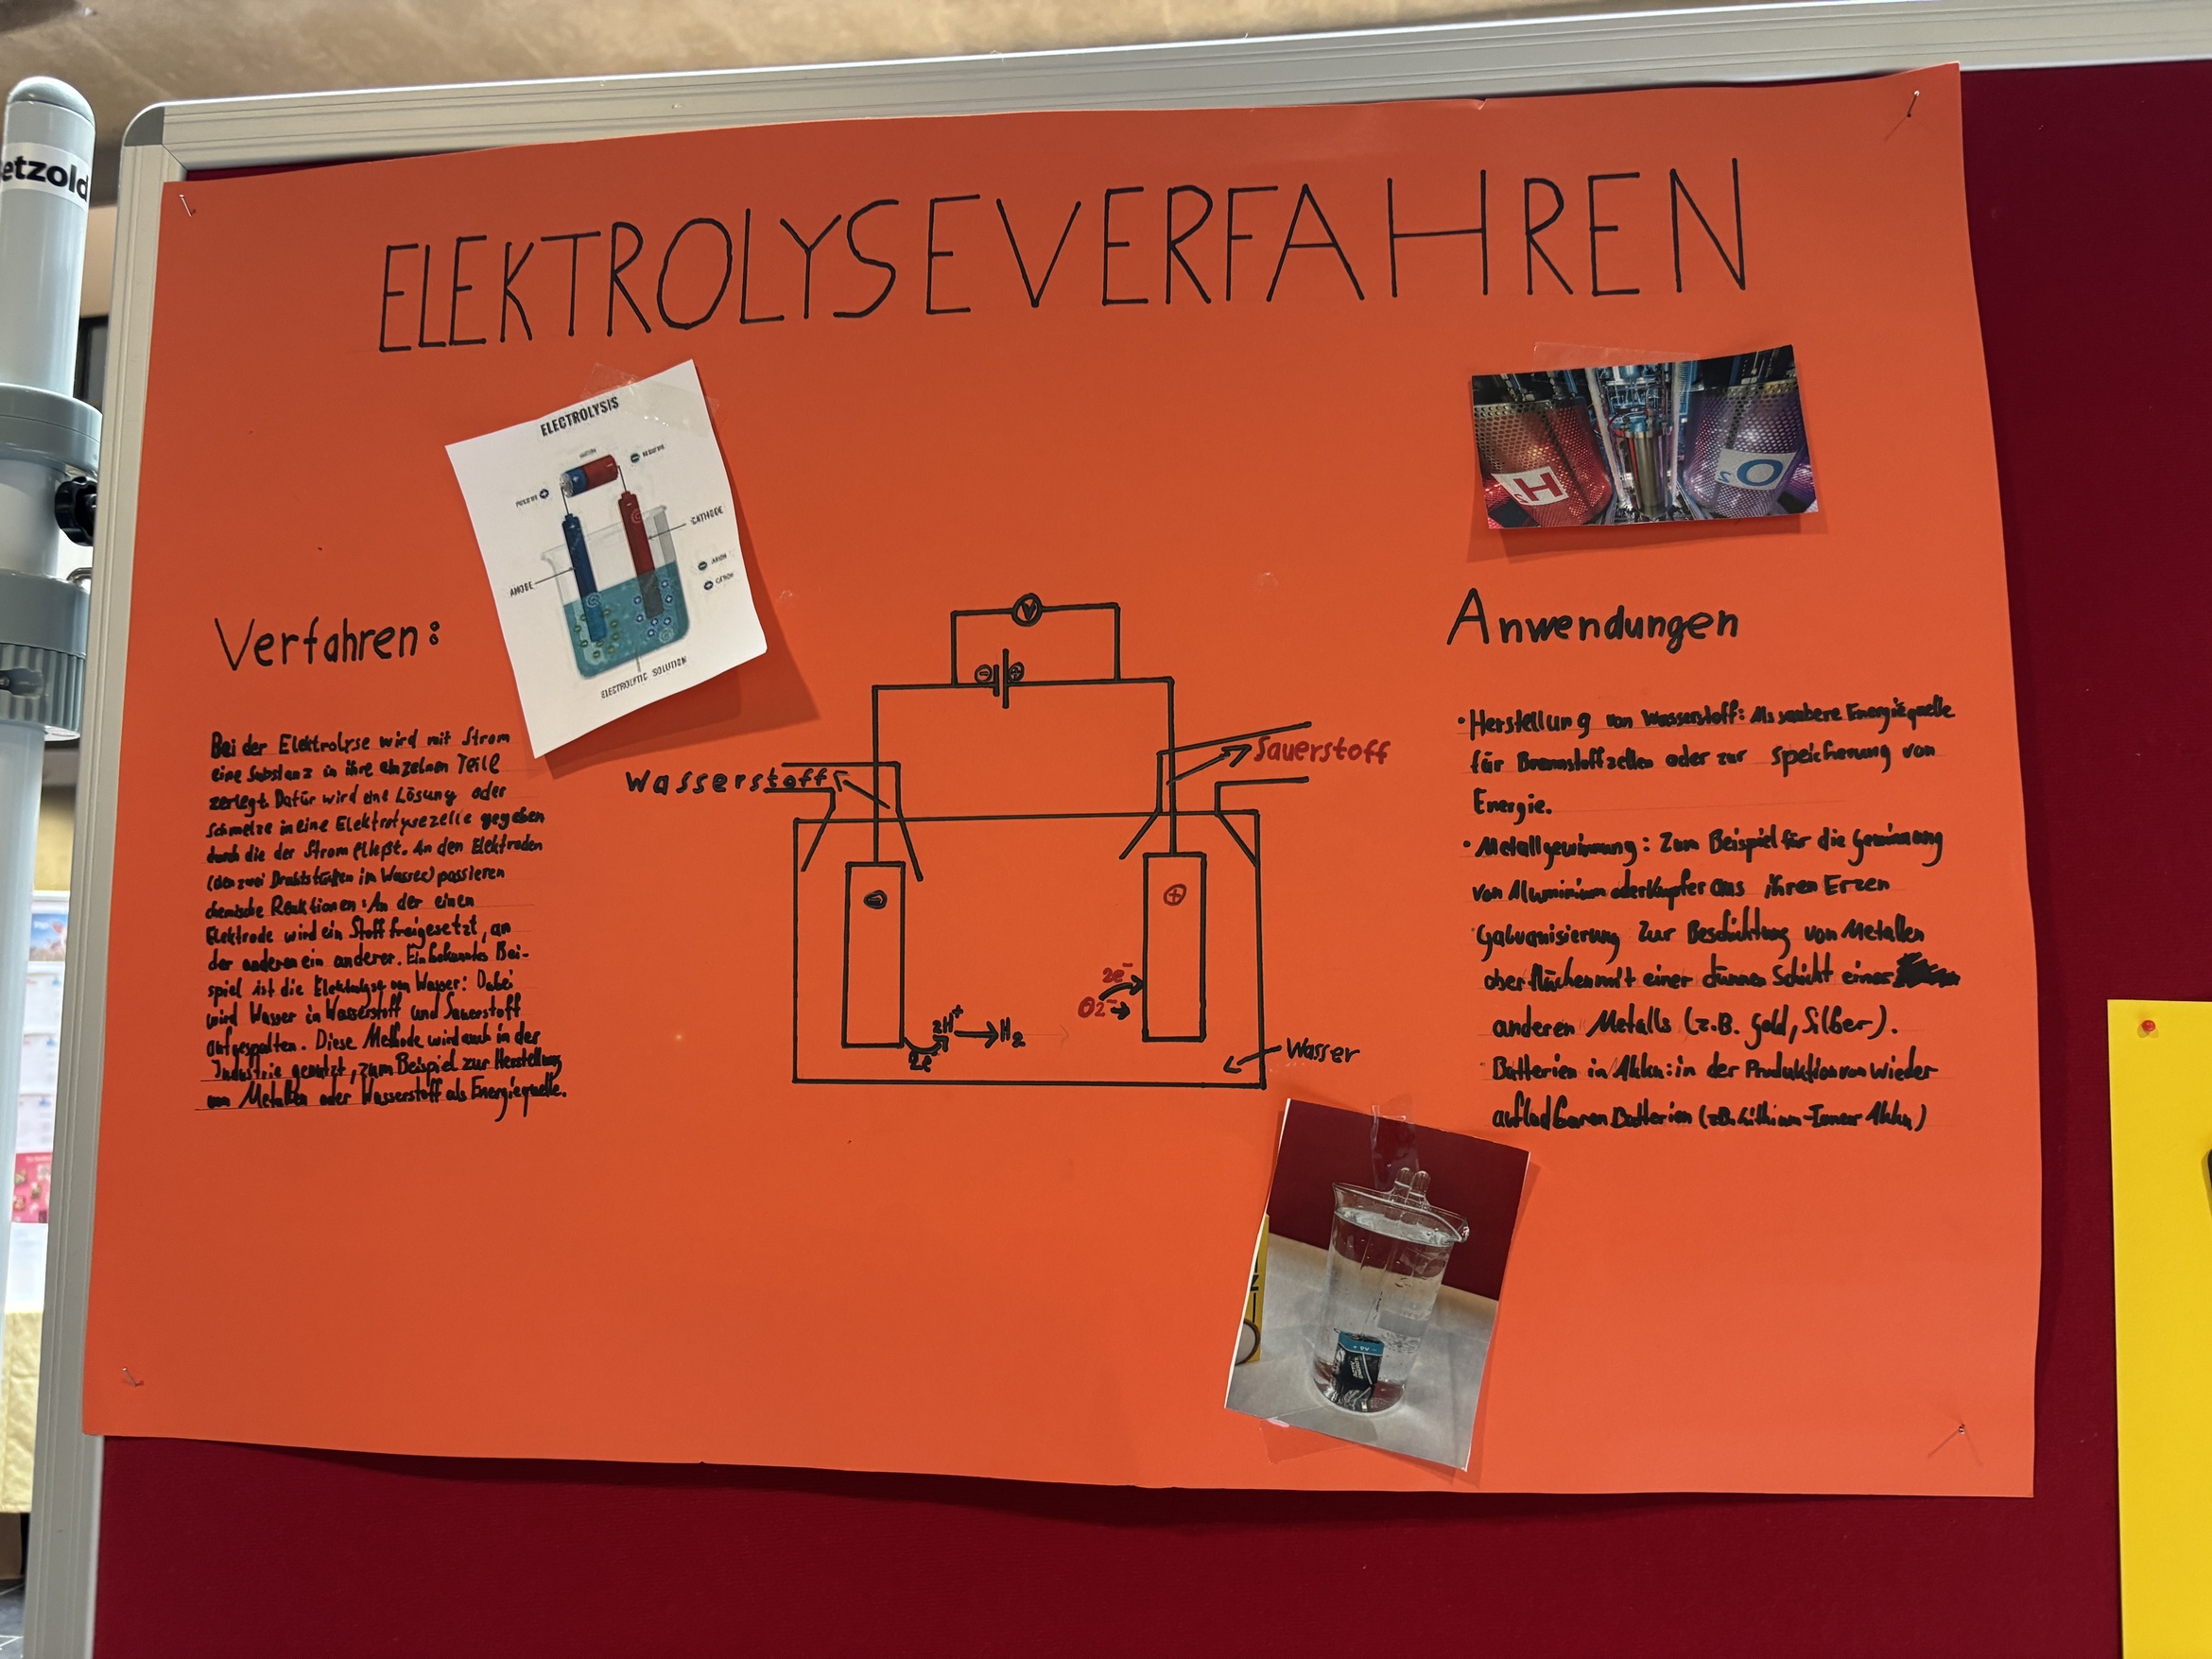 etzold
ELEKTROLYSEVERFAHREN
ELECTROLYSIS
POSITIVE
NEGATIVE
CATHODE
ANODE
ANION
CATION
ELECTROLYTIC SOLUTION
H2
O2
Verfahren:
Bei der Elektrolyse wird mit Strom
eine Substanz in ihre einzelnen Teile
zerlegt. Dafür wird eine Lösung oder
Schmelze in eine Elektrolysezelle gegeben
durch die der Strom fließt. An den Elektroden
(den zwei Drahtstücken im Wasser) passieren
chemische Reaktionen. An der einen
Elektrode wird ein Stoff freigesetzt, an
der anderen ein anderer. Ein bekanntes Bei-
spiel ist die Elektrolyse von Wasser: Dabei
wird Wasser in Wasserstoff und Sauerstoff
aufgespalten. Diese Methode wird auch in der
Industrie genutzt, zum Beispiel zur Herstellung
von Metallen oder Wasserstoff als Energiequelle.
V
- +
Wasserstoff
Sauerstoff
-
+
2e-
O2-
2H+ → H2
2e-
Wasser
Anwendungen
• Herstellung von Wasserstoff: Als saubere Energiequelle
für Brennstoffzellen oder zur Speicherung von
Energie.
• Metallgewinnung: Zum Beispiel für die Gewinnung
von Aluminium oder Kupfer aus ihren Erzen
· Galvanisierung Zur Beschichtung von Metallen
oberflächen mit einer dünnen Schicht eines
anderen Metalls (z.B. Gold, Silber).
· Batterien in Akku: in der Produktion von Wieder
aufladbaren Batterien (zB. Lithium-Ionen Akku)
+ 9V -